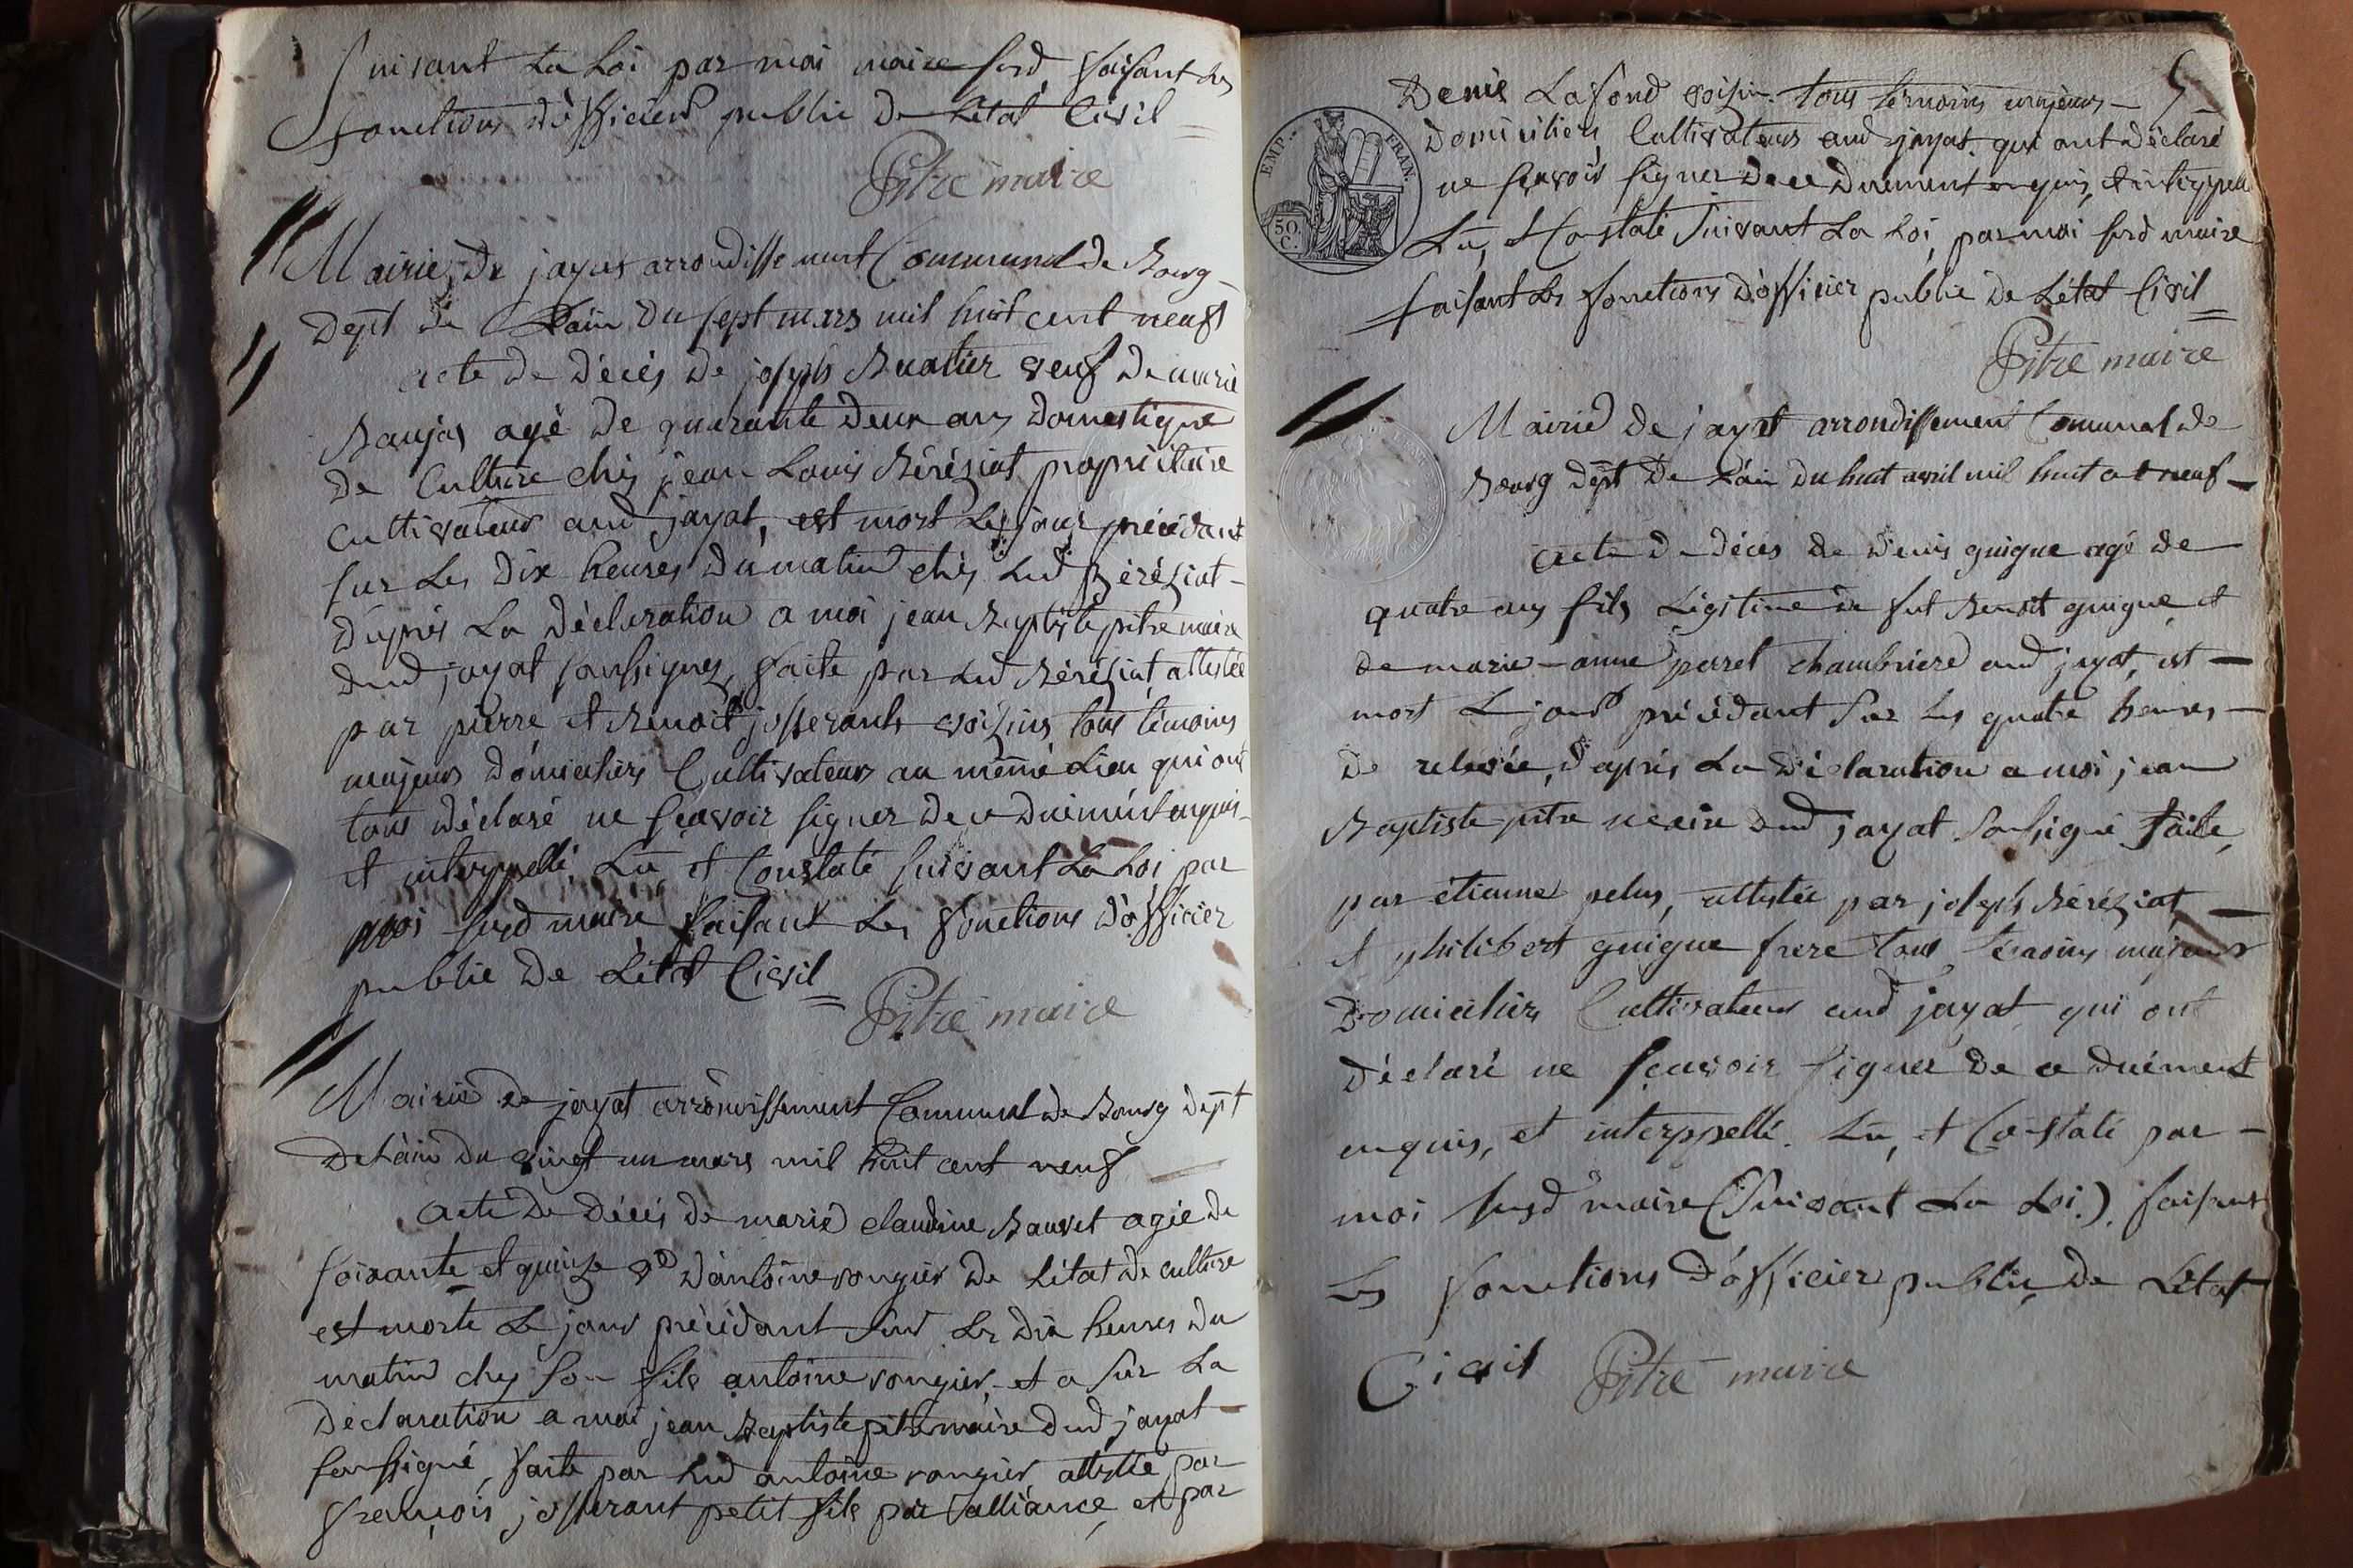 Suivant La Loi par moi maire susd. faisant les
fonctions d'officier public de L'état Civil =
Pitre maire
Mairie de jayat arrondissement Communal de Bourg
dept de L'ain du sept mars mil huit cent neuf
acte de décés de joseph Buatier veuf de marie
Baujas agé de quarante deux ans domestique
de Culture chés jean Louis Béréziat propriétaire
Cultivateur aud jayat, est mort Le jour précédant
sur Les dix heures du matin chés Lud Béréziat
d'aprés La déclaration a moi jean Baptiste pitre maire
dud jayat soussigné, faite par Lud Béréziat, attestée
par pierre et Benoit josserants voisins tous témoins
majeurs domiciliés Cultivateurs au même Lieu qui ont
tous déclaré ne sçavoir signer de ce duement enquis
et interppellé. Lu, et Constaté suivant La Loi par
moi susd maire faisant Les fonctions d'officier
public de L'état Civil =
Pitre maire
Mairie de jayat arrondissement Communal de Bourg dept
de L'ain du vingt un mars mil huit cent neuf
acte de décés de marie claudine Bauvet agée de
soixante et quinze vᵉ d'antoine rongier de L'état de culture
est morte Le jour précédant sur Les dix heures du
matin chez son fils antoine rongier, et a sur La
déclaration a moi jean Baptiste pitre maire dud jayat
soussigné, faite par Lud antoine rongier attesté par
françois josserant petit fils par alliance, et par
5
Denis Lafond voisin. tous témoins majeurs
EMP. FRAN. 50. C.
domiciliés, Cultivateurs aud jayat. qui ont déclaré
ne sçavoir signer de ce duement enquis, et interppellé
Lu, et Constaté suivant La Loi, par moi susd maire
faisant Les fonctions d'officier public de L'état Civil =
Pitre maire
Mairie de jayat arrondissement Comunal de
Bourg dept de L'ain du huit avril mil huit ct neuf
acte de décés de denis guigue agé de
quatre ans fils Légitime de fut Benoit guigue et
de marie-anne perret chambriere aud jayat, est
mort Le jour précédant sur Les quatre heures
de relevée, d'aprés La déclaration a moi jean
Baptiste pitre maire dud jayat soussigné faite,
par étienne pelus, attestée par joseph Béréziat,
et philibert guigue frere tous témoins majeurs
domiciliés Cultivateurs aud jayat qui ont
déclaré ne sçavoir signer de ce duément
enquis, et interppellé. Lu, et Constaté par
moi susd maire (Suivant La Loi.). faisant
Les fonctions d'officier public de L'état
Civil Pitre maire